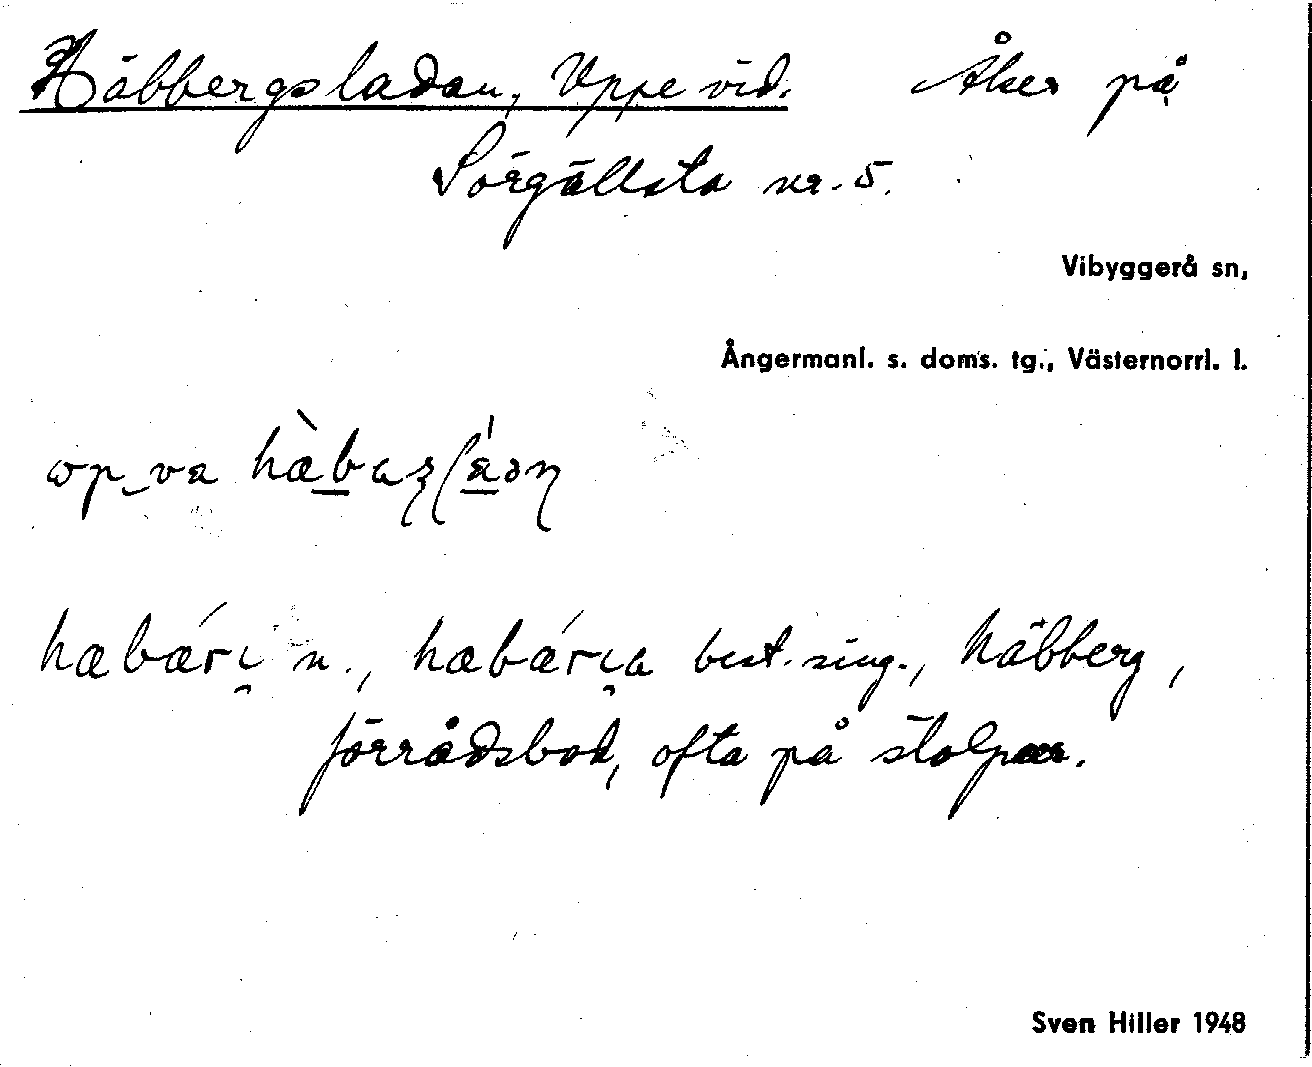 Häbbergsladan, Uppe vid. Åker på
Sörgällsta nr. 5.
Vibyggerå sn,
Ångermanl. s. doms. tg., Västernorrl. l.
hæbǽri̯ n., hæbǽri̯a best. sing., häbberg,
förrådsbod, ofta på stolpar.
Sven Hiller 1948